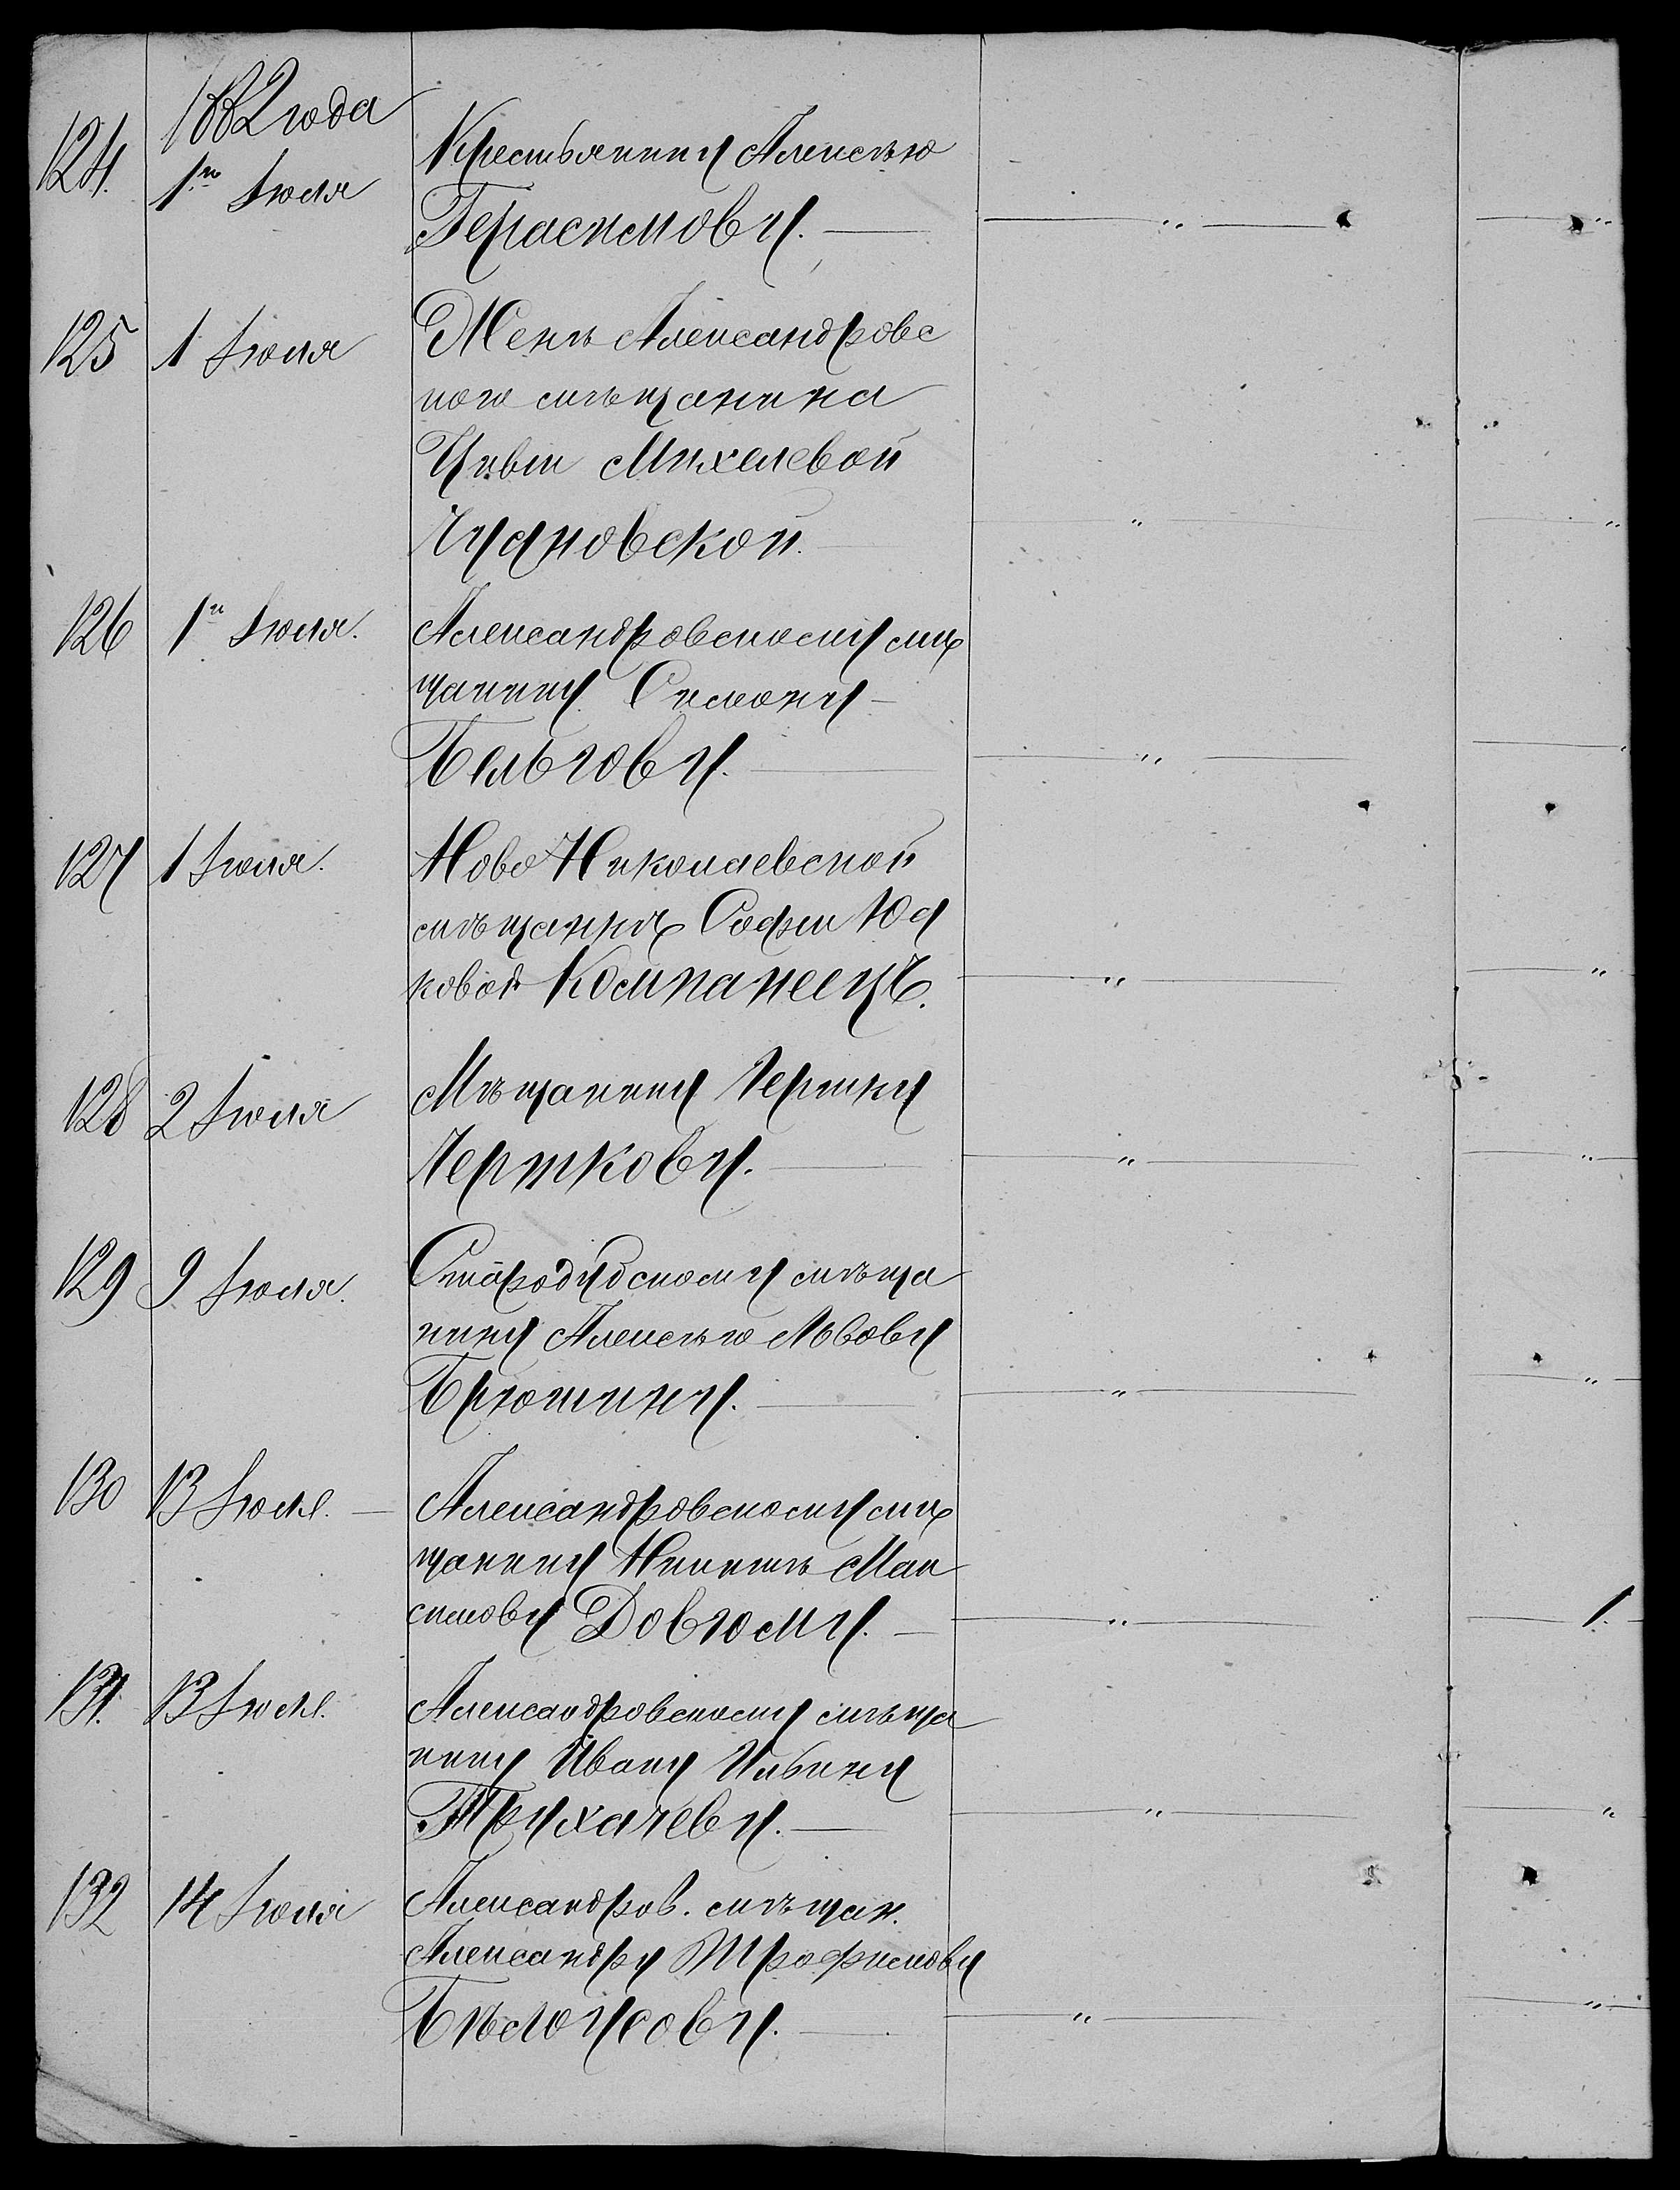 1882 года
124. 1го Іюля Крестьянину Алексѣю
Герасимову. — — " — — "
125 1 Іюля Женѣ Александровс
кого мѣщанина
Цивіи Михелевой
Чудновской. — — " — — "
126 1го Іюля. Александровскому мѣ
щанину Симону —
Бельгову. — — " — —
127 1 Іюля. Ново Николаевской
мѣщанкѣ Софіи Юд
ковой Компанеецъ. — " — — "
128 2 Іюля Мѣщанину Гершку
Гершкову. — — " — — " —
129 9 Іюля. Стародубскому мѣща
нину Алексѣю Львову
Брюшину. — — " — — " —
130 13 Іюля. — Александровскому мѣ
щанину Никитѣ Мак
симову Довгому. — — " — — 1.
131. 13 Іюля. Александровскому мѣща
нину Ивану Ильину
Трухачеву. — — " — — "
132 14 Іюля Александров. мѣщан.
Александру Трофимову
Бѣлоусову. — — " — — " —